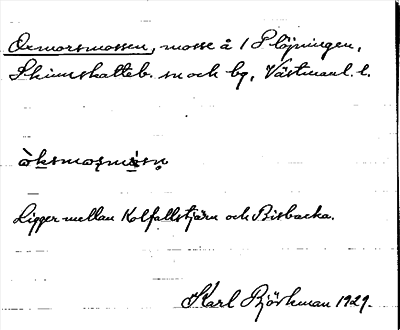 Oxmorsmossen, mosse å 1 Plöjningen,
Skinnskatteb. sn och bg, Västmanl. l.
òksmoṣmɩ̀sn̥
Ligger mellan Kolfallstjärn och Bisbacka.
Karl Björkman 1929.